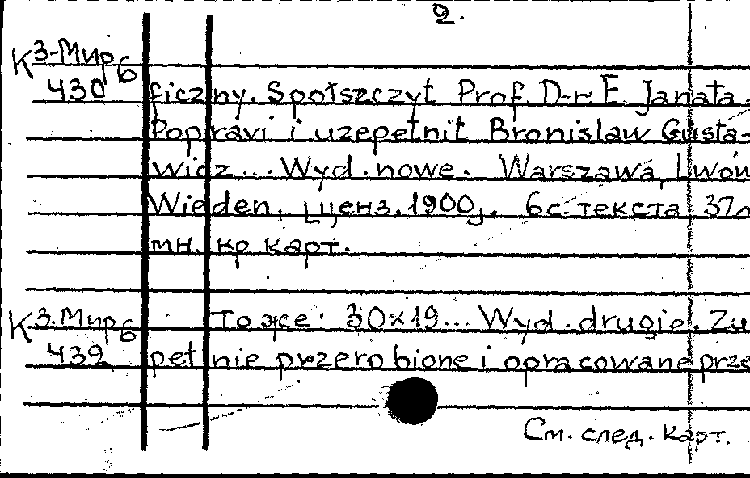 2.
К 3-Мир 6
430 ficzny. Spolszczył Prof. D-r E. Janata.
Popravi i uzepełnił Bronislaw Gusta-
wicz... Wyd. nowe. Warszawa, Lwów
Wieden, [ценз. 1900]. 6 с. текста 37
мн. кр. карт.
К 3.Мир 6
432 То же. 30×19... Wyd. drugie. Zu
pełnie przerobione i opracowane prze
См. след. карт.